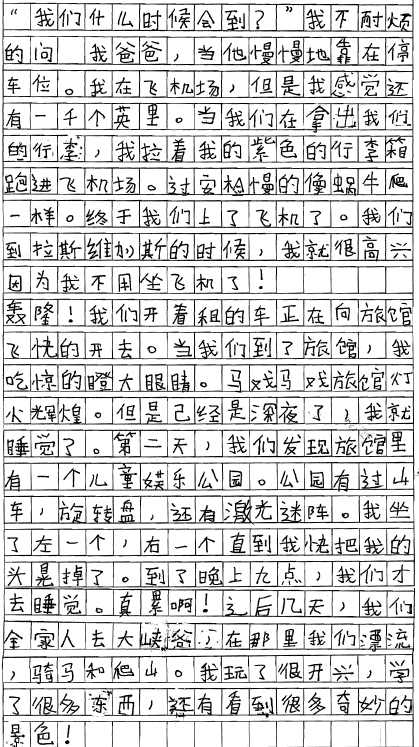 “我们什么时候会到？”我不耐烦
的问 我爸爸，当他慢慢地靠在停
车位。我在飞机场，但是我感觉还
有一千个英里。当我们在拿出我们
的行李，我拉着我的紫色的行李箱
跑进飞机场。过安检慢的像蜗牛爬
一样。终于我们上了飞机了。我们
到拉斯维加斯的时候，我就很高兴
因为我不用坐飞机了！
轰隆！我们开着租的车正在向旅馆
飞快的开去。当我们到了旅馆，我
吃惊的瞪大眼睛。马戏马戏旅馆灯
火辉煌。但是已经是深夜了，我就
睡觉了。第二天，我们发现旅馆里
有一个儿童娱乐公园。公园有过山
车，旋转盘，还有激光迷阵。我坐
了左一个，右一个直到我快把我的
头晃掉了。到了晚上九点，我们才
去睡觉。真累啊！之后几天，我们
全家人去大峡谷，在那里我们漂流
，骑马和爬山。我玩了很开兴，学
了很多东西，还有看到很多奇妙的
景色！